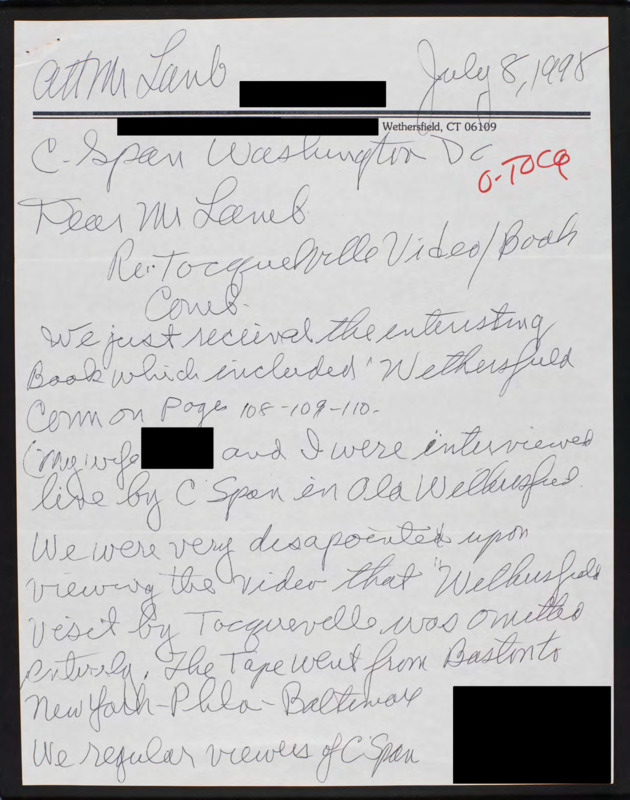 Att Mr Lamb
July 8, 1998
Wethersfield, CT 06109
C-Span Washington DC
O-TOCQ
Dear Mr Lamb
Re: Tocqueville Video/Book
Comb.
We just received the interesting
Book which included "Wethersfield
Conn on Pages 108-109-110-
(My wife and I were interviewed
live by C Span in Old Wethersfield.
We were very disapointed upon
viewing the video that "Wethersfield
visit by Tocquevelle was omitted
entirely. The Tape went from Boston to
New York-Phla-Baltimore
We regular viewers of C Span